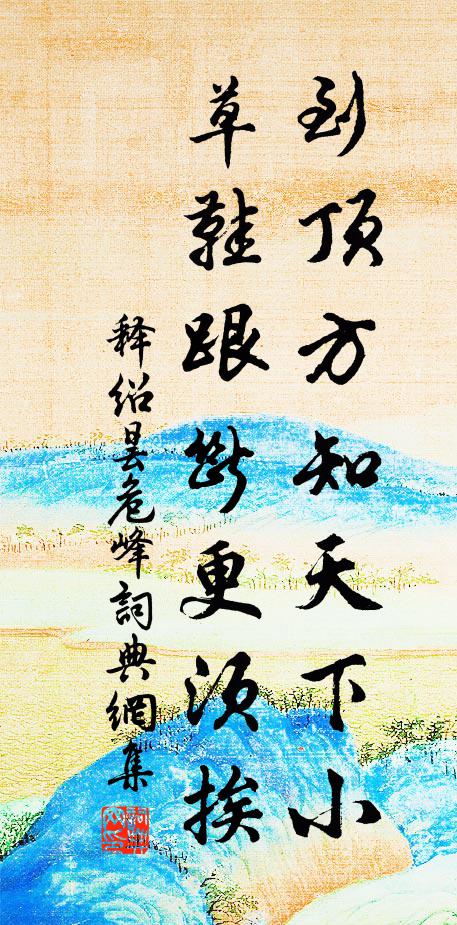 到顶方知天下小
草鞋跟断更须挨
释绍昙危峰詞典網集